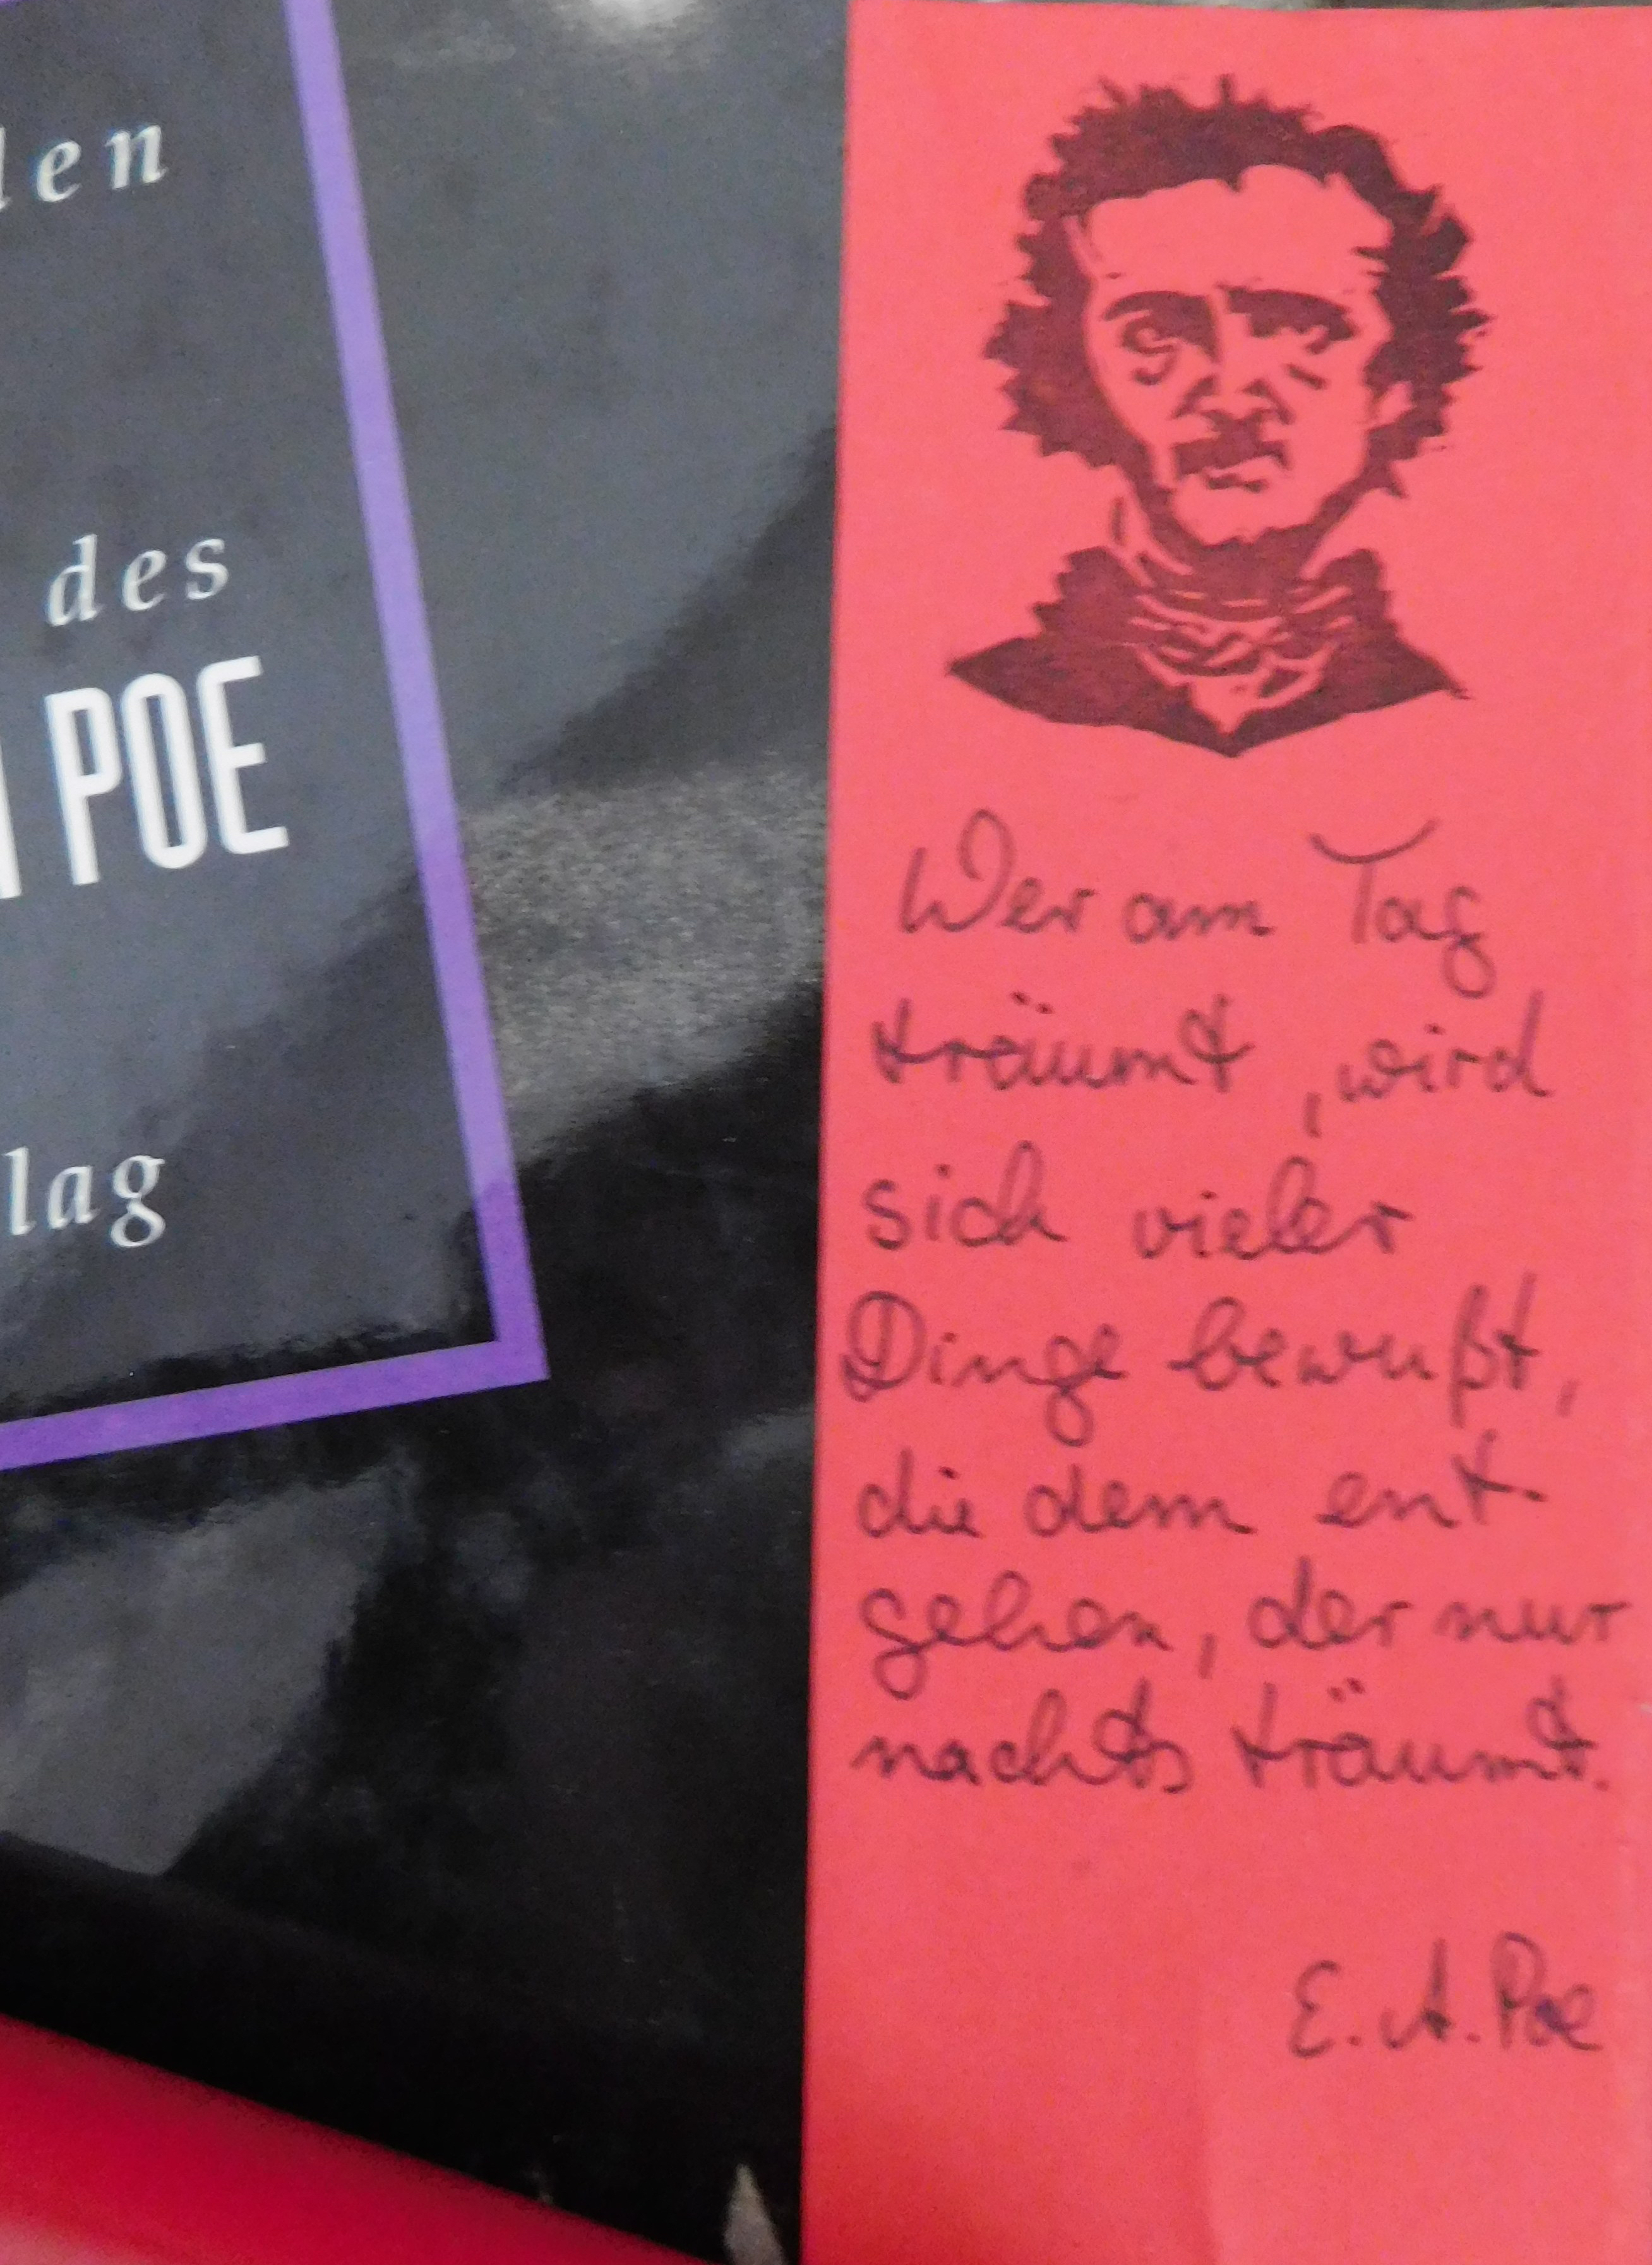 den
des
POE
lag
Wer am Tag
träumt, wird
sich vieler
Dinge bewußt,
die dem ent-
gehen, der nur
nachts träumt.
E. A. Poe